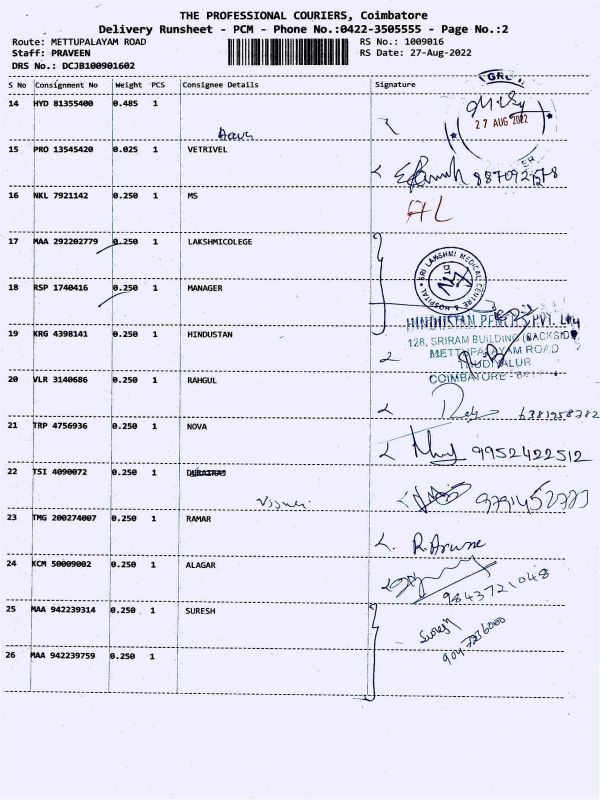 THE PROFESSIONAL COURIERS, Coimbatore
Delivery Runsheet - PCM - Phone No.:0422-3505555 - Page No.:2
Route: METTUPALAYAM ROAD RS No.: 1009016
Staff: PRAVEEN RS Date: 27-Aug-2022
DRS No.: DCJB100901602
S No Consignment No Weight PCS Consignee Details Signature
14 HYD 81355400 0.485 1
27 AUG 2022
15 PRO 13545420 0.025 1 VETRIVEL
16 NKL 7921142 0.250 1 MS
AL
17 MAA 292202779 0.250 1 LAKSHMICOLEGE
SRI LAKSHMI MEDICAL CENTRE & HOSPITAL
18 RSP 1740416 0.250 1 MANAGER
19 KRG 4398141 0.250 1 HINDUSTAN
HINDUSTAN PVT. LTD
128, SRIRAM BUILDING (BACKSIDE)
METTUPALAYAM ROAD
THUDIYALUR
COIMBATORE
20 VLR 3140686 0.250 1 RAHGUL
6381958782
21 TRP 4756936 0.250 1 NOVA
9952422512
22 TSI 4090072 0.250 1 DURAIRAJ
23 TMG 200274007 0.250 1 RAMAR
R. Arune
24 KCM 50009002 0.250 1 ALAGAR
9843721048
25 MAA 942239314 0.250 1 SURESH
Suresh
26 MAA 942239759 0.250 1